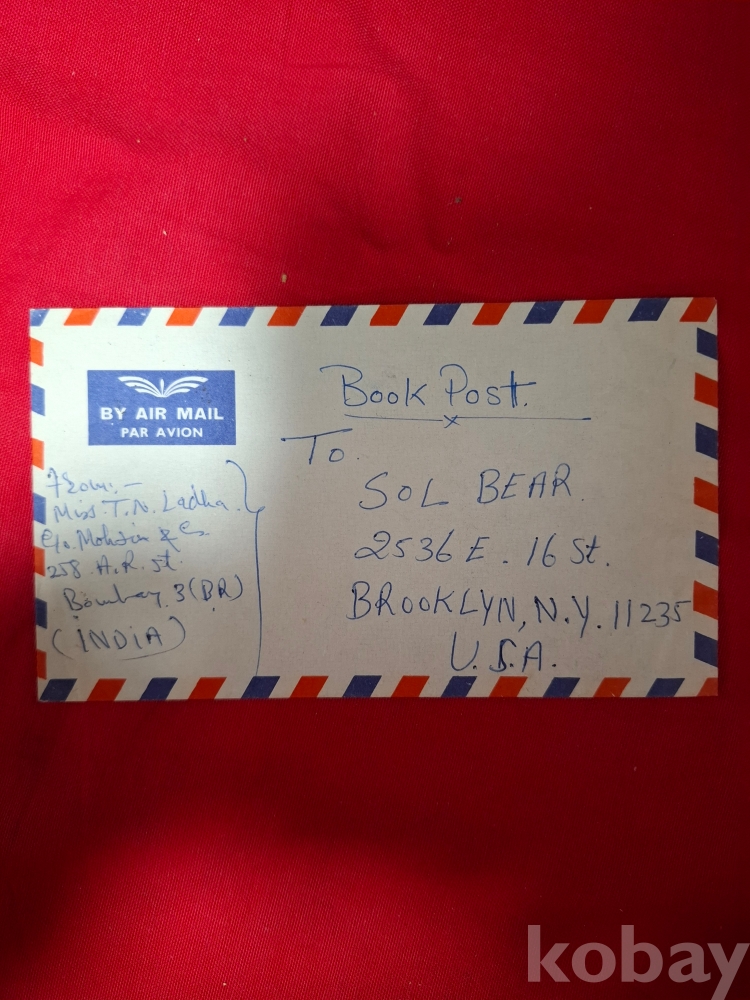 Book Post.
BY AIR MAIL
PAR AVION
To.
SOL BEAR.
2536 E. 16 St.
BROOKLYN, N.Y. 11235
U.S.A.
From:-
Miss. T.N. Ladha.
C/o. Mohsin & Co.
258 A.R. St.
Bombay 3 (BR)
(INDIA)
kobay